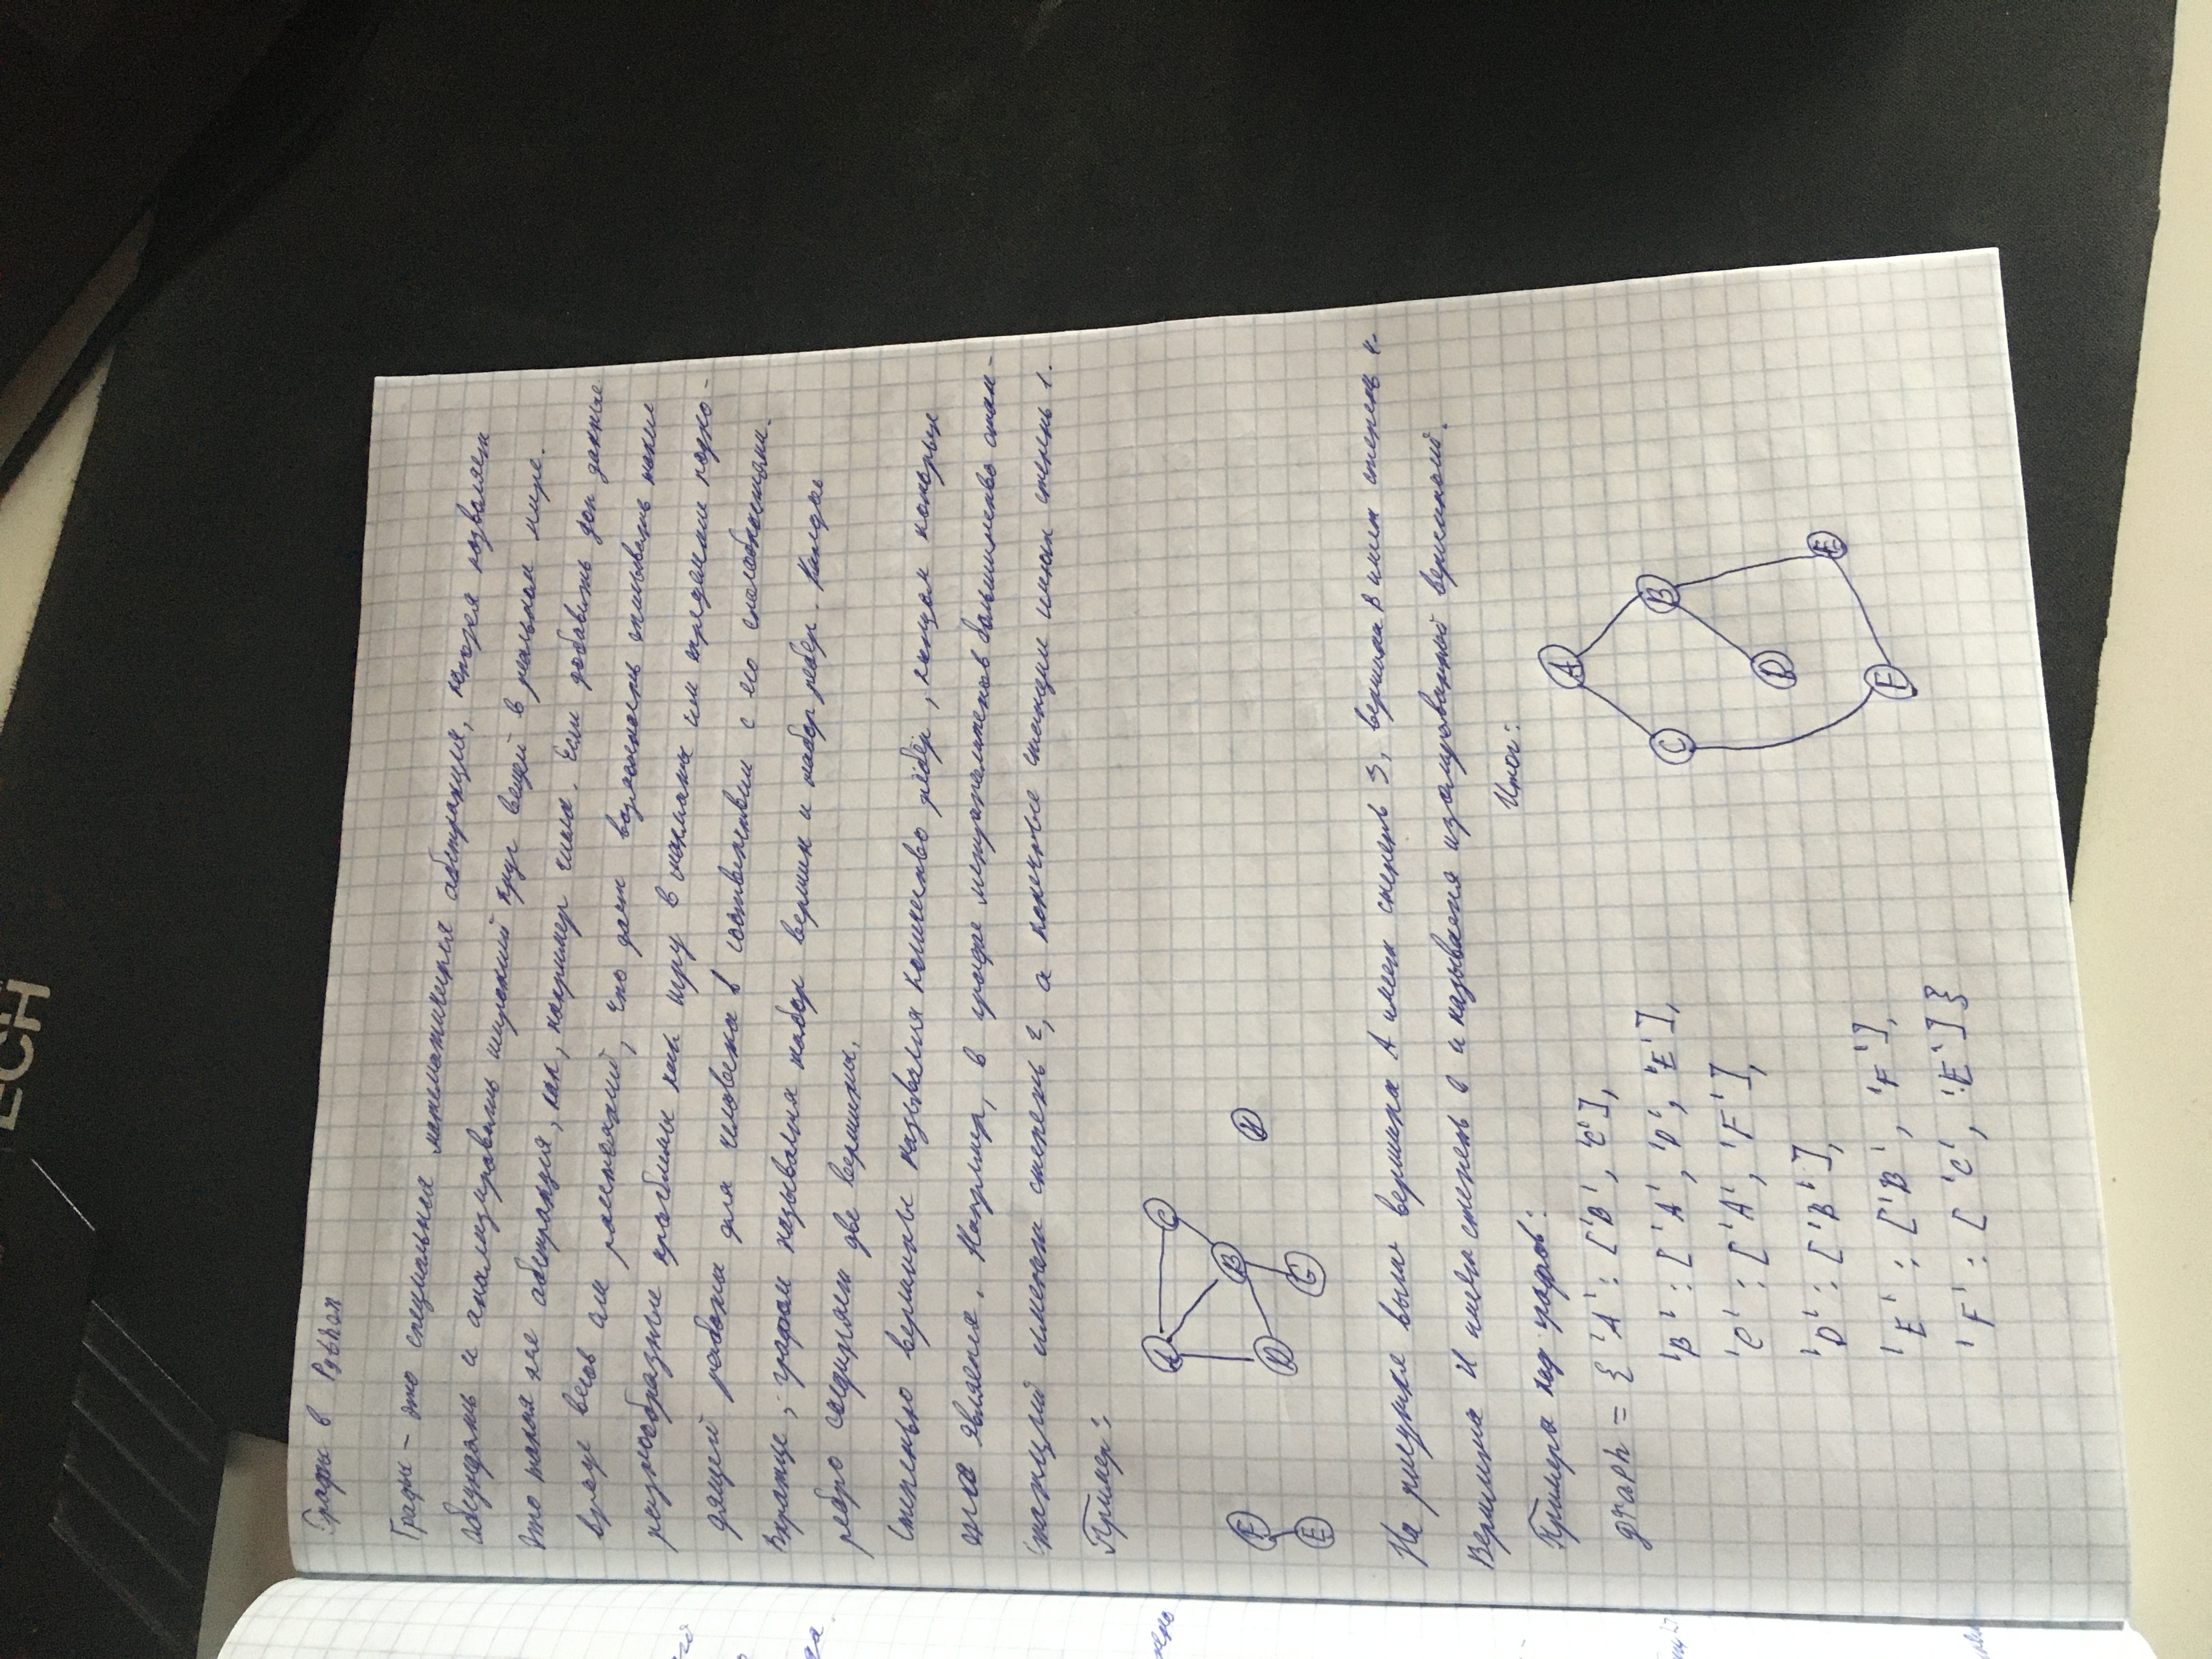 ECH
Графы в Python
Графы - это специальная математическая абстракция, которая позволяет
обсуждать и анализировать широкий круг вещей в реальном мире.
Это такая же абстракция, как, например числа. Если добавить доп данные
вроде весов или расстояний, что дает возможность описывать такие
разнообразные проблемы как игру в шахматы или определение подхо-
дящей работы для человека в соответствии с его способностями.
Вкратце, графом называется набор вершин и набор рёбер. Каждое
ребро соединяет две вершины.
Степенью вершины называется количество рёбер, концом которых
она является. Например, в графе метрополитенов большинство стан-
имеют степень 2, а конечные станции имеют степень 1.
Пример:
A C
F B H
D
E G
На рисунке выше вершина A имеет степень 3, вершина B имеет степень 4.
Вершина H имеет степень 0 и называется изолированной вершиной.
Итог:
Пример код графов:
graph = { 'A' : ['B', 'C'],
'B' : ['A', 'D', 'E'],
'C' : ['A', 'F'],
'D' : ['B'],
'E' : ['B', 'F'],
'F' : ['C', 'E'] }
A
C B
D
E
F